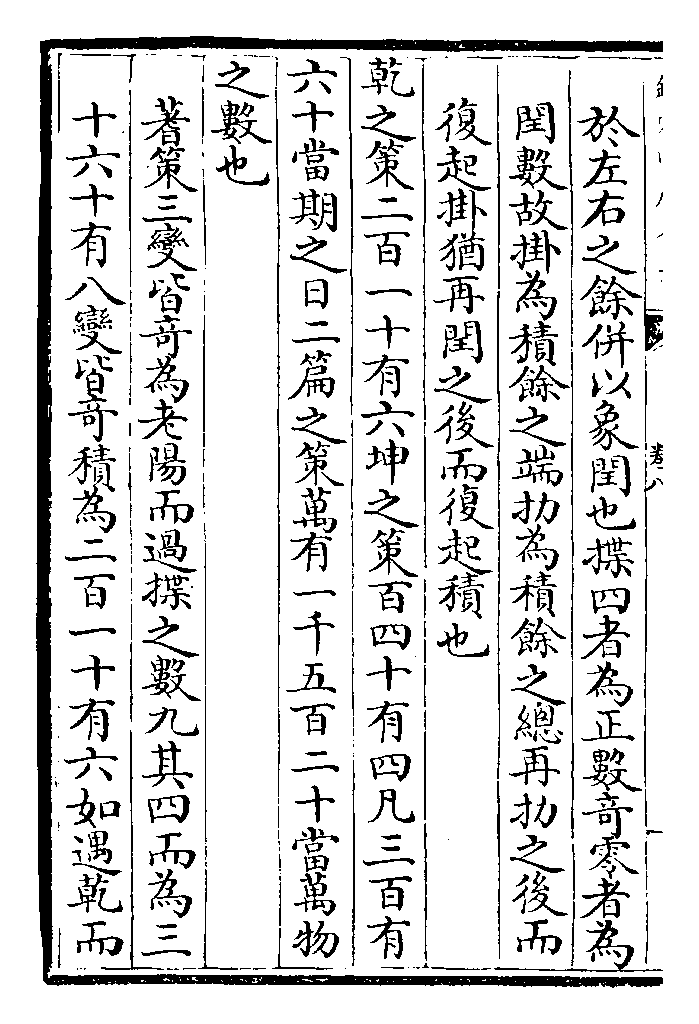 於左右之餘併以象閏也揲四者為正數竒零者為
閏數故掛為積餘之端扐為積餘之總再扐之後而
復起掛猶再閏之後而復起積也
乾之策二百一十有六坤之策百四十有四凡三百有
六十當期之日二篇之策萬有一千五百二十當萬物
之數也
蓍策三變皆竒為老陽而過揲之數九其四而為三
十六十有八變皆竒積為二百一十有六如遇乾而
卷八